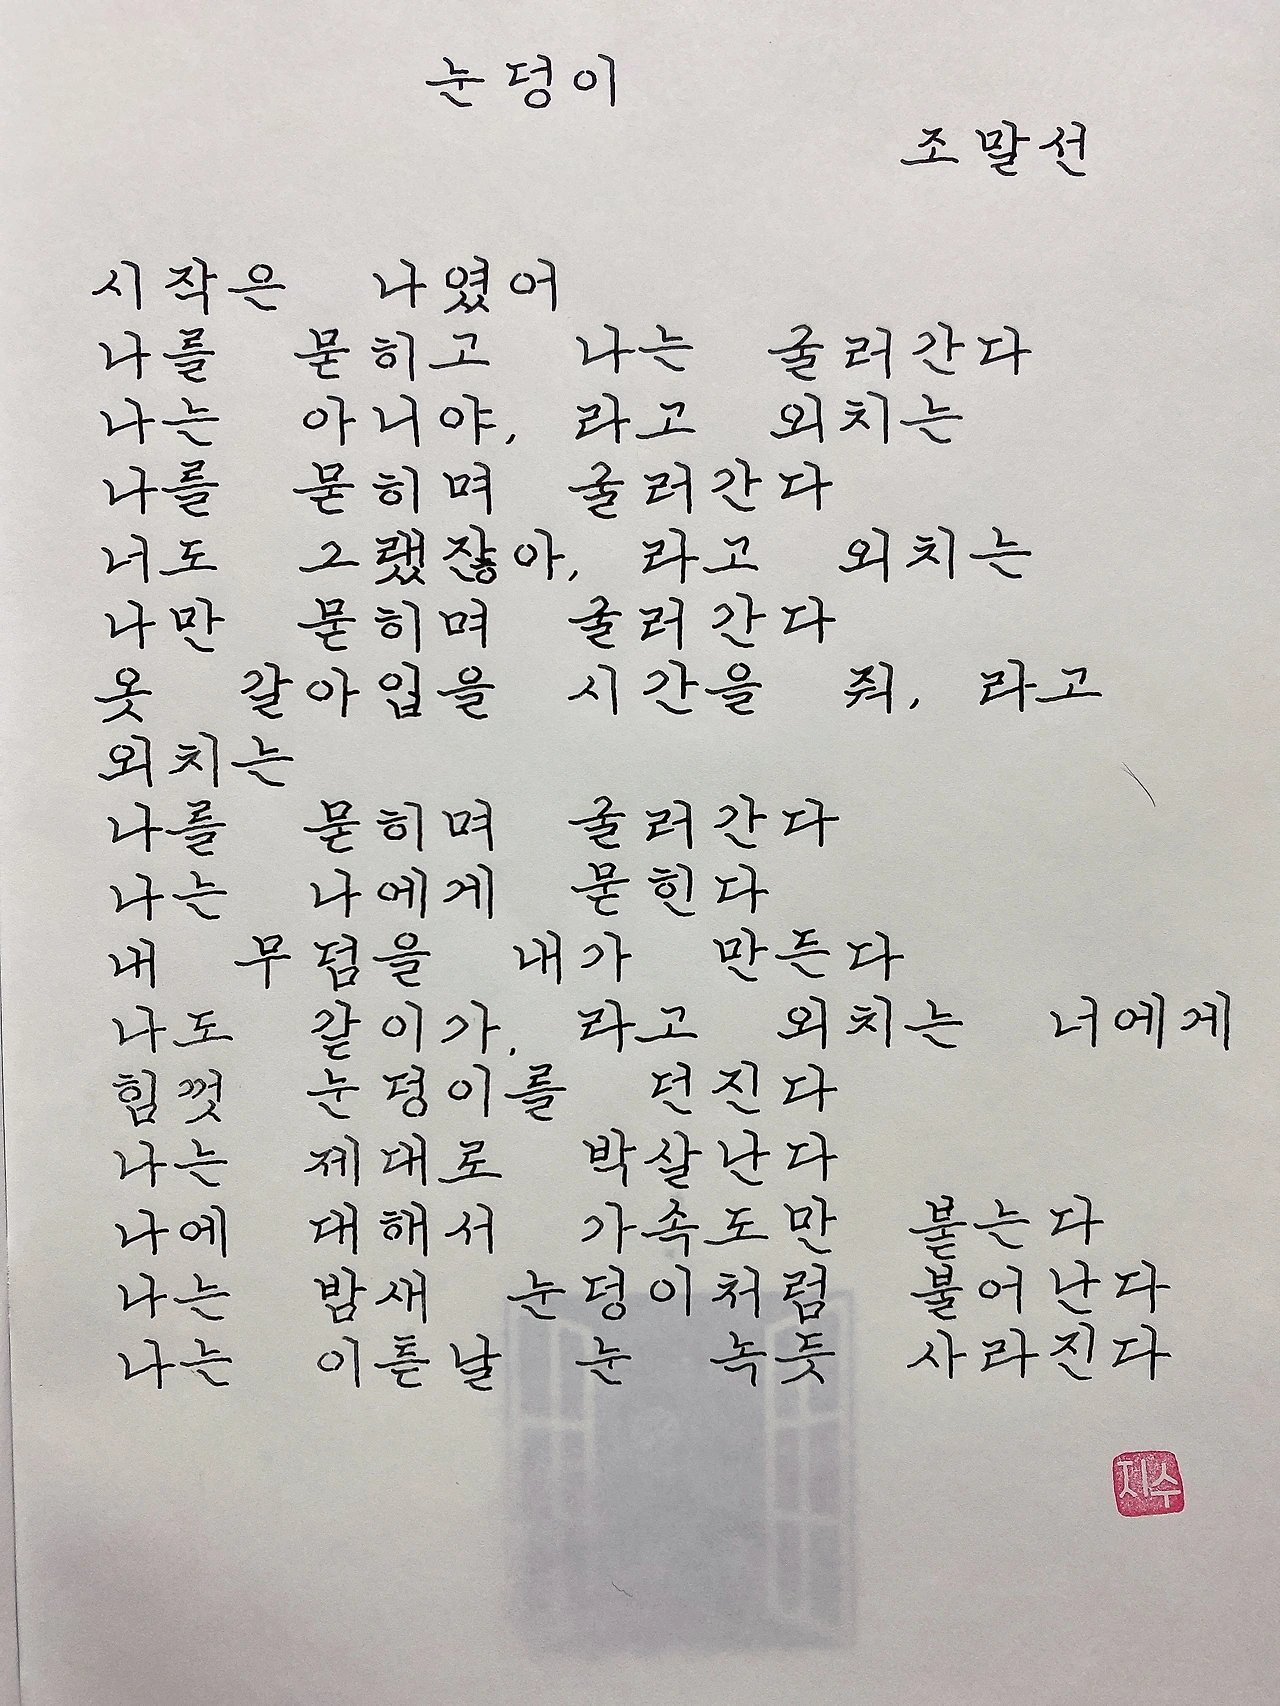 눈덩이
조말선
시작은 나였어
나를 묻히고 나는 굴러간다
나는 아니야, 라고 외치는
나를 묻히며 굴러간다
너도 그랬잖아, 라고 외치는
나만 묻히며 굴러간다
옷 갈아입을 시간을 줘, 라고
외치는
나를 묻히며 굴러간다
나는 나에게 묻힌다
내 무덤을 내가 만든다
나도 같이가, 라고 외치는 너에게
힘껏 눈덩이를 던진다
나는 제대로 박살난다
나에 대해서 가속도만 붙는다
나는 밤새 눈덩이처럼 불어난다
나는 이튿날 눈 녹듯 사라진다
지수